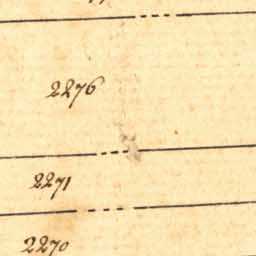 2276
2271
2270